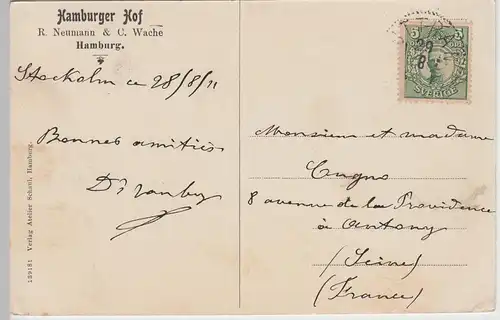 Hamburger Hof
R. Neumann & C. Wache
Hamburg.
Stockolm ce 28/8/11
Bonnes amitiés
139181 Verlag Atelier Schaul, Hamburg.
5 ÖRE 5
SVERIGE
29
8
Monsieur et madame
Cugno
8 avenue de la Providence
à Antony
(Seine)
(France)